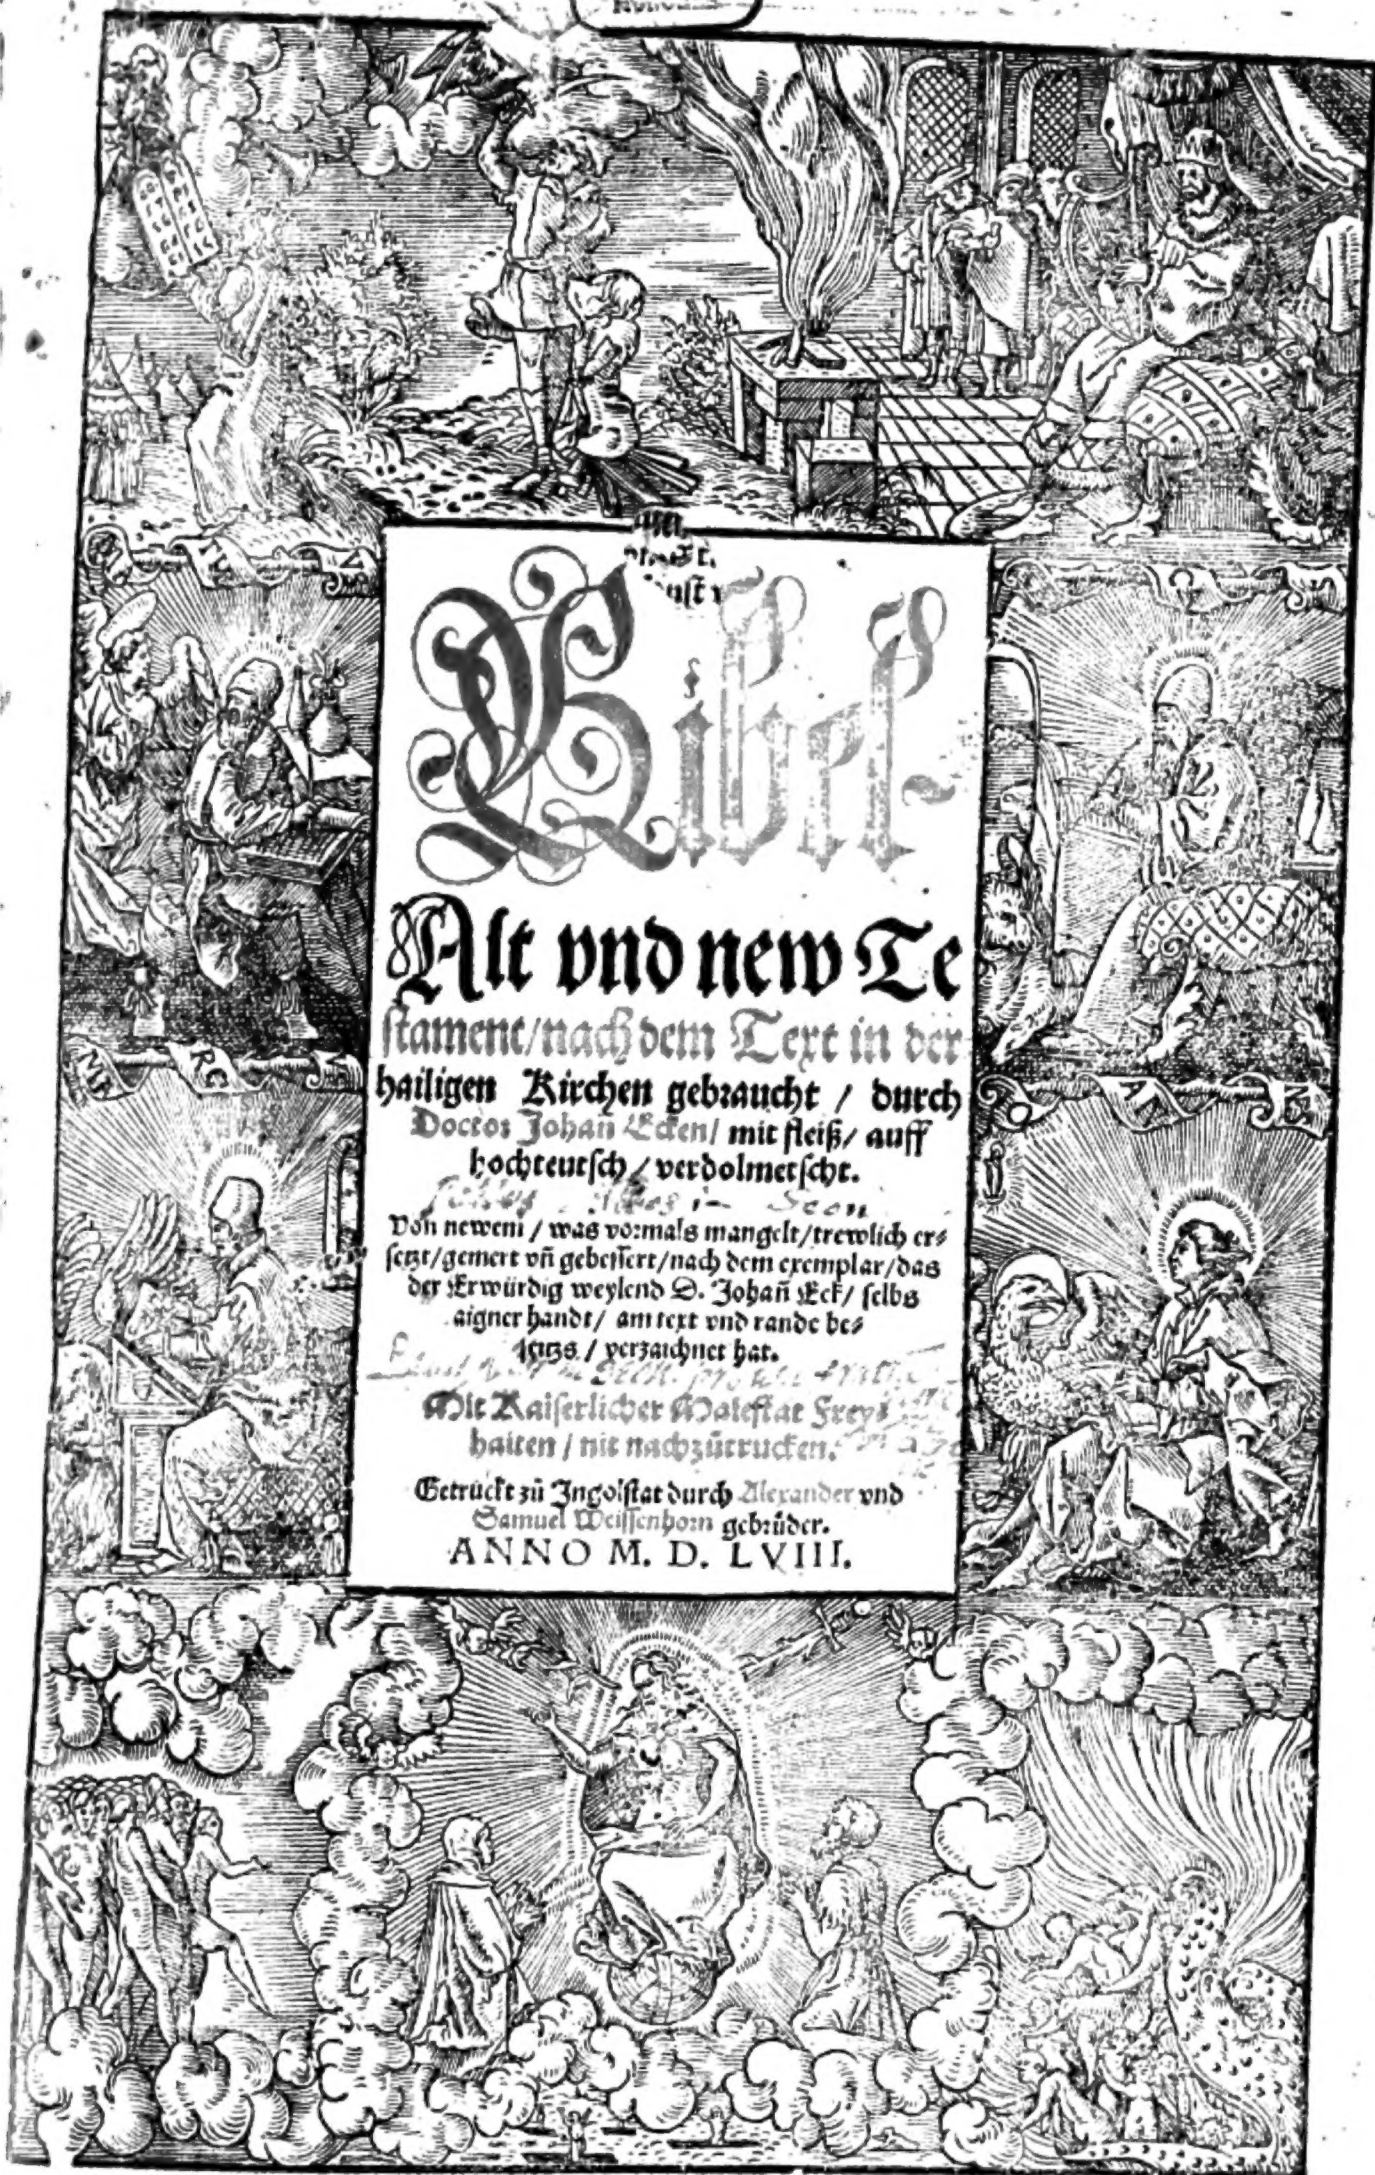 Bibel
Alt vnd new Te
stament/nach dem Text in der
hailigen Kirchen gebraucht / durch
Doctor Johañ Ecken/ mit fleiß/ auff
hochteutsch / verdolmetscht.
Von newem / was vormals mangelt/trewlich er⸗
setzt/gemert vñ gebessert/nach dem exemplar/das
der Erwürdig weylend D. Johañ Eck/ selbs
aigner handt/ am text vnd rande be⸗
seitzs / verzaichnet hat.
Mit Kaiserlicher Maiestat Frey⸗
haiten / nit nachzůtrucken.
Getruckt zů Ingolstat durch Alexander vnd
Samuel Weissenhorn gebrůder.
ANNO M. D. LVIII.
MA RC
IO AN ES